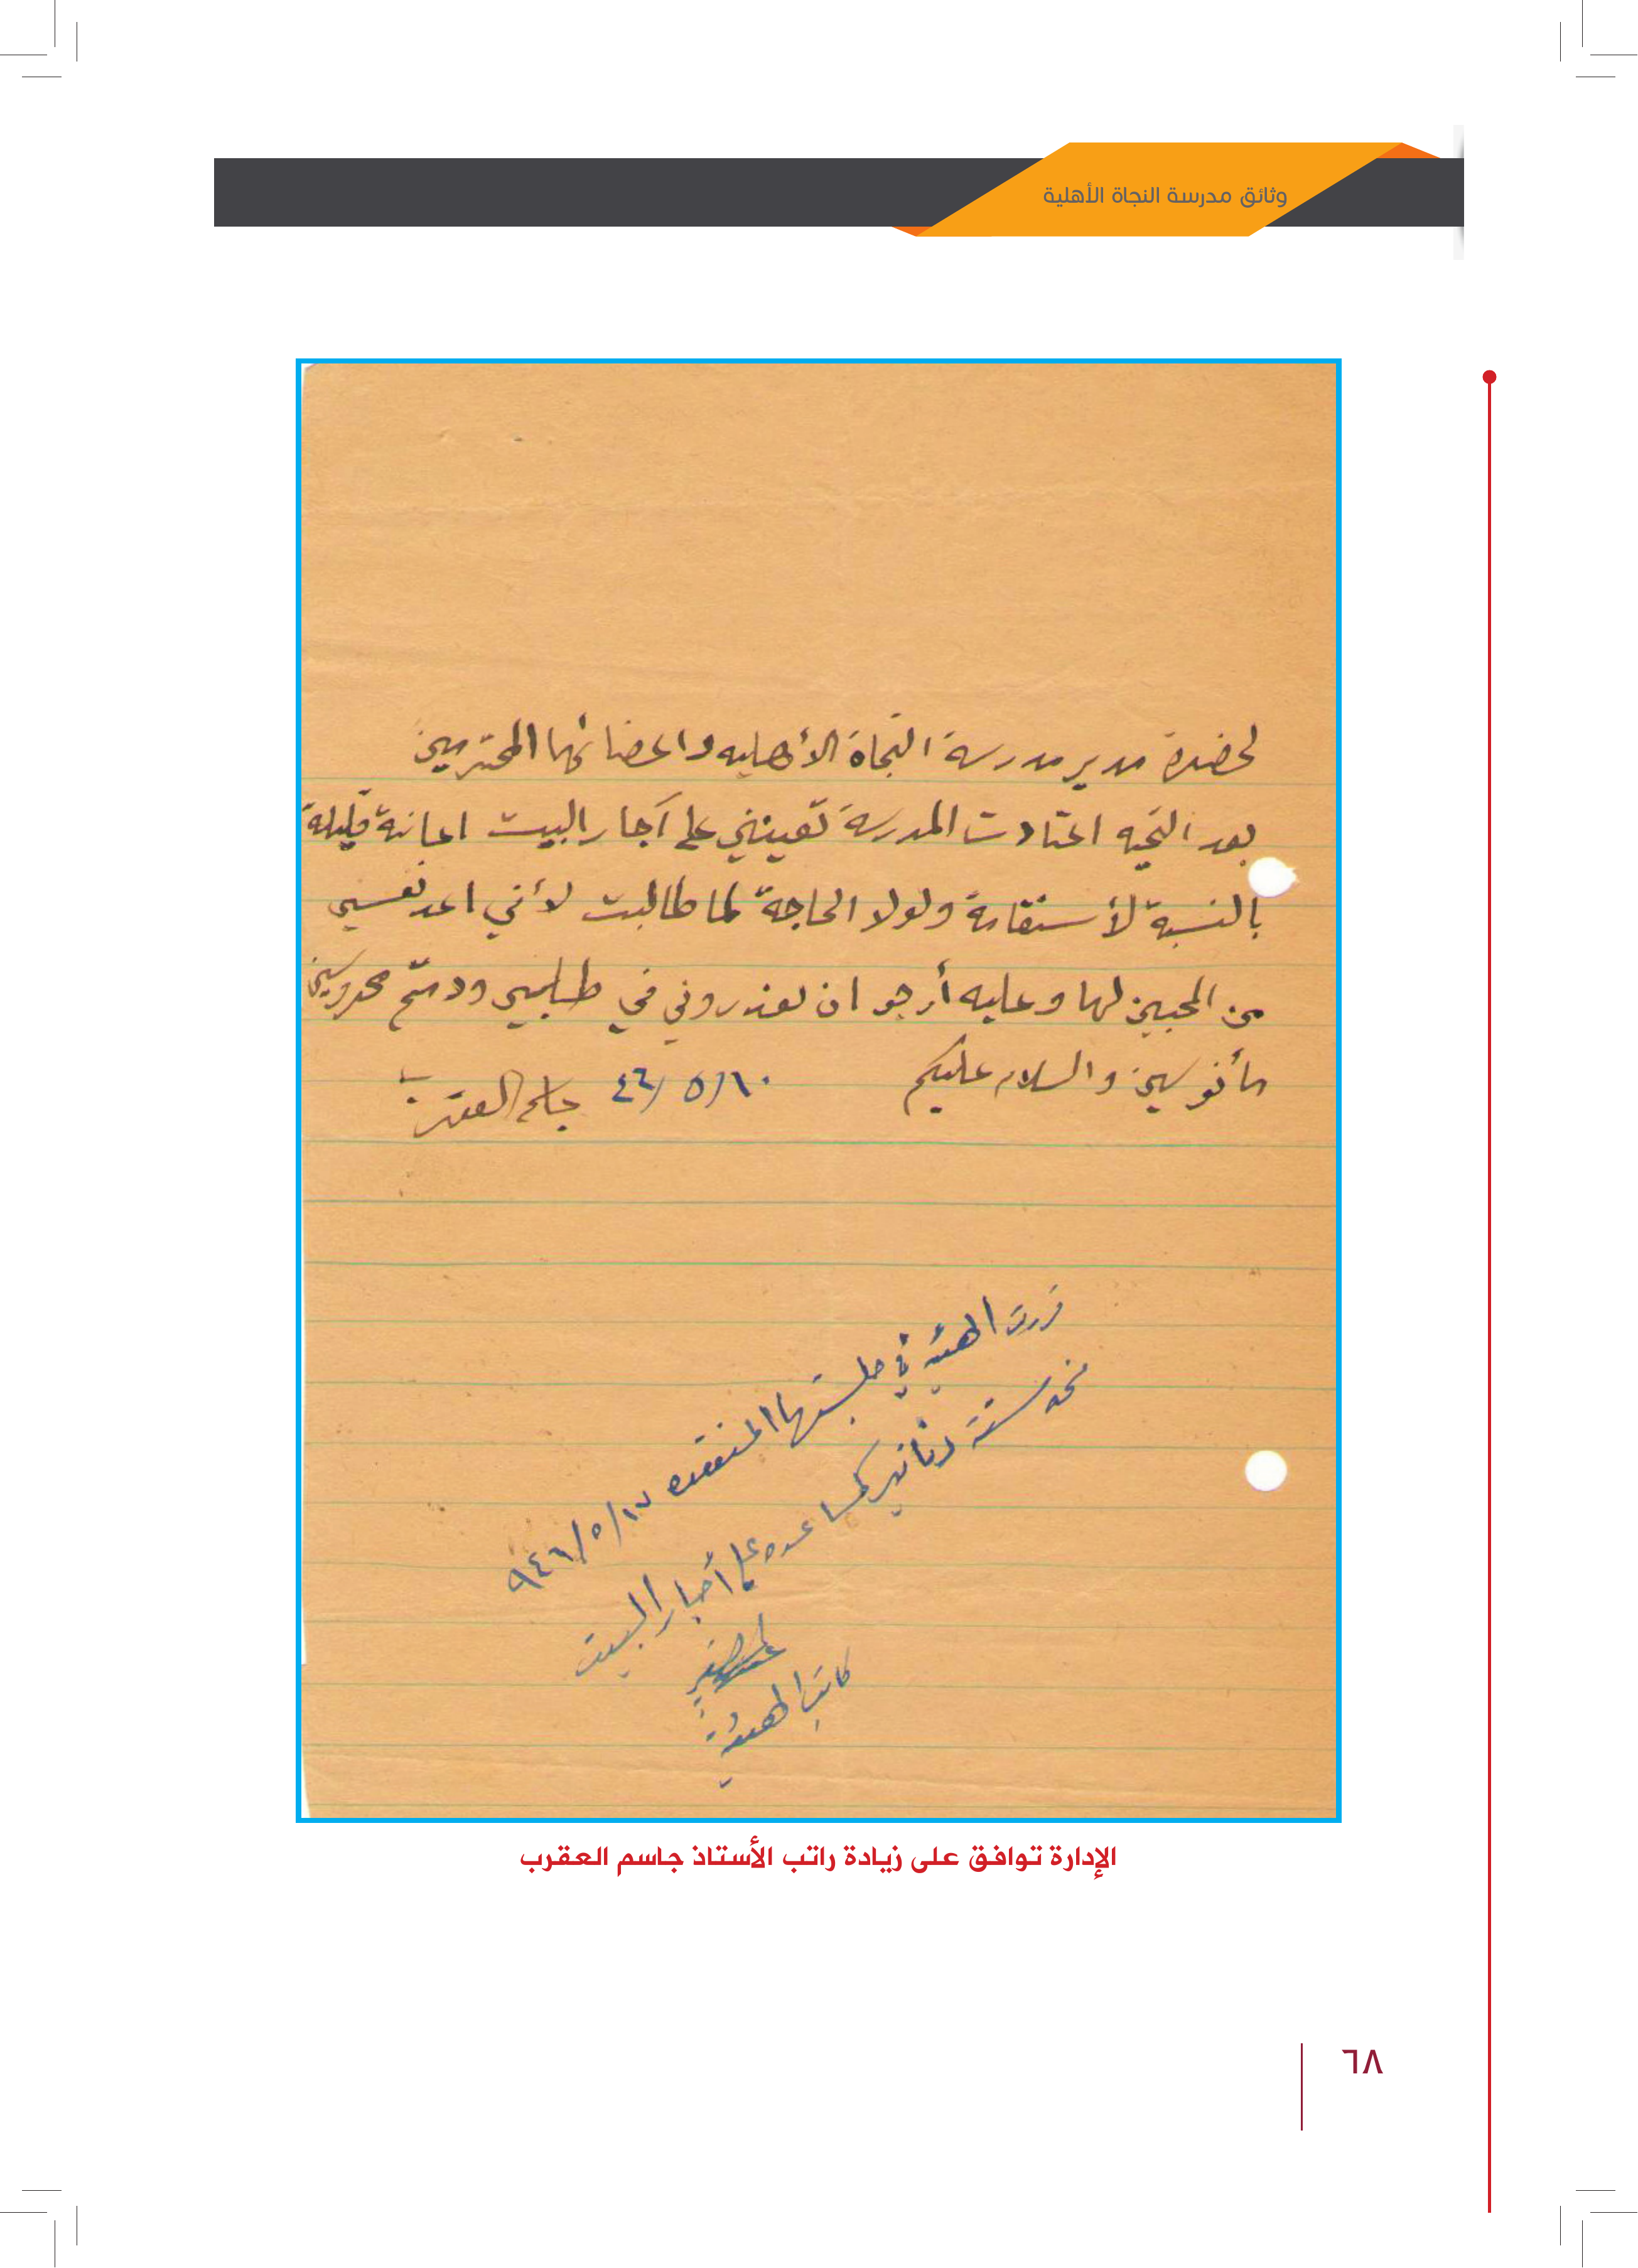 وثائق مدرسة النجاة الأهلية
لحضرة مدير مدرسة النجاة الأهليه واعضائها المحترمين
بعد التحيه اعتادت المدرسة تعينني على آجار البيت اعانة قليلة
بالنسبة لأستقامة ولولا الحاجة لما طالبت لأني اعد نفسي
من المحبين لها وعليه أرجو ان تعذروني في طلبي ودمتم محروسين
مأنوسين والسلام عليكم ١٠/٥/٤٦ جاسم العقرب
قررت الهيئة في جلستها المنعقده ١٧/٥/٩٤٦
ستة دنانير كمساعده على أجار البيت
كاتب الهيئة
الإدارة توافق على زيادة راتب الأستاذ جاسم العقرب
٦٨